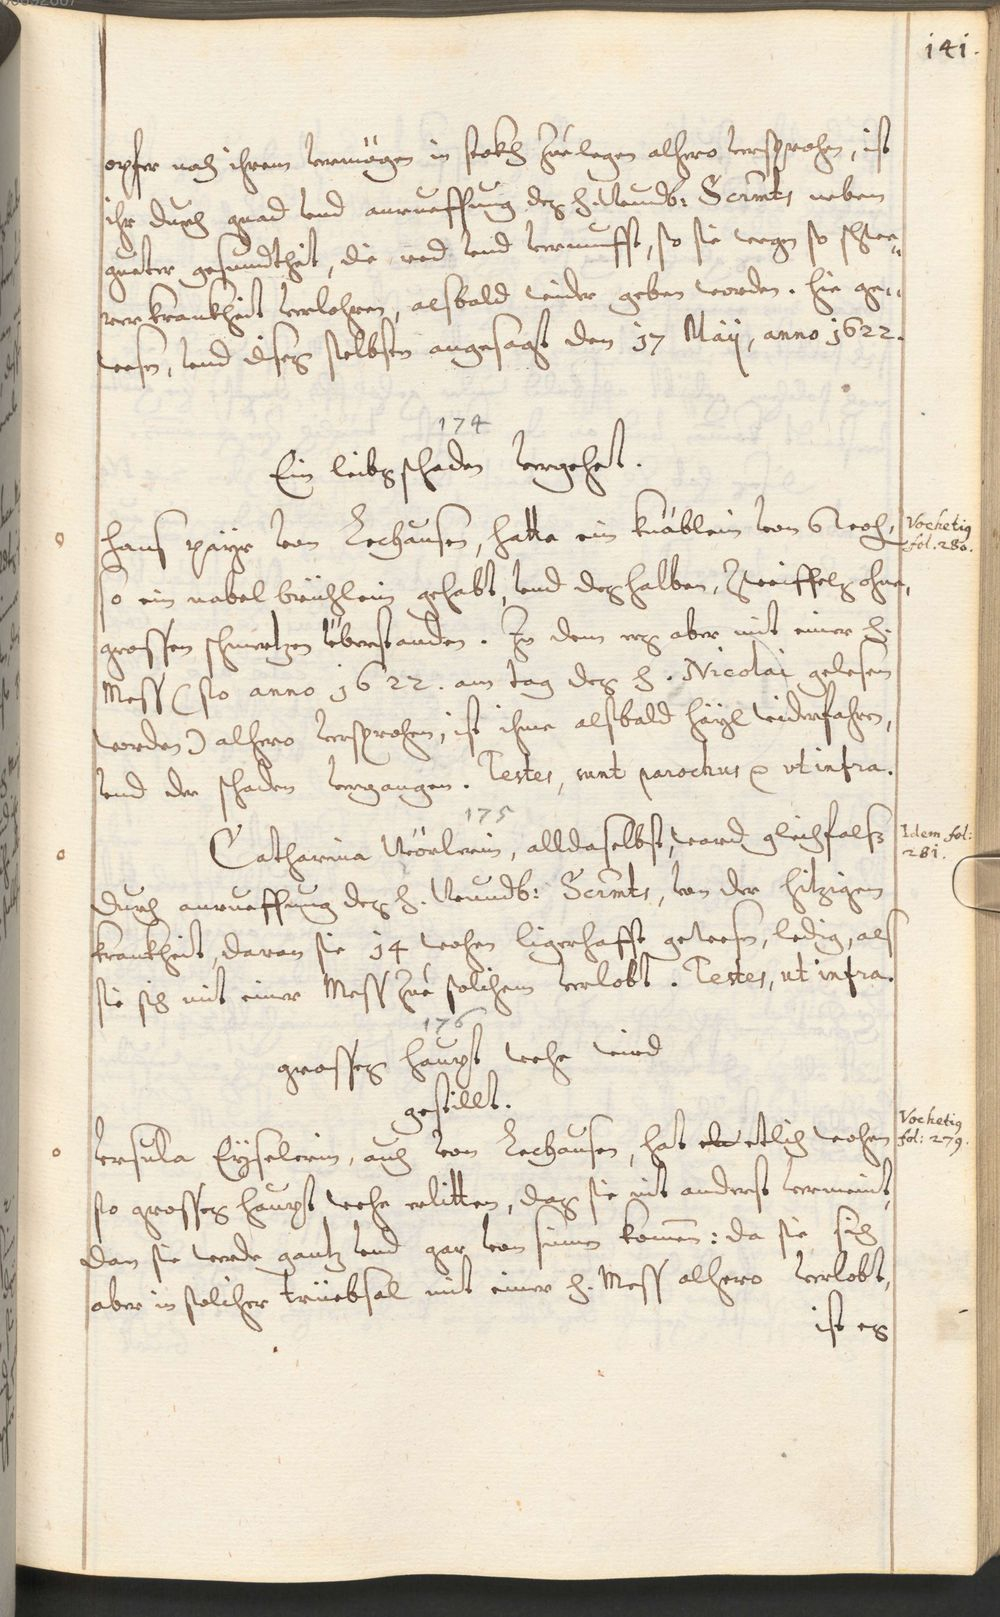 141.
opfer nach ihrem vermögen in stokh zue legen alhero versprochen, ist
ihr durch gnad vnd anrueffung deß h. Wundb: Scrmts neben
gueter gesundtheit, die red vnd vernunfft, so sie wegen so schwe„
rer krankheit verlohren, alsbald wider geben worden. Hie ge„
wesen, vnd dises selbsten angesagt den 17 Maÿ, anno 1622.
174
Ein leibsschaden vergehet.
Hans paÿr von Lechausen, hatte ein knäblein von 6 woch,
Vochetig
fol. 280.
so ein nabel brüchlein gehabt, vnd deßhalben, Zweiffels ohne,
grossen schmertzen überstanden. In dem ers aber mit einer h.
Mess (so anno 1622. am tag deß h. Nicolai gelesen
worden) alhero versprochen, ist ihme alsbald häyl widerfahren,
vnd der schaden vergangen. Testes, sunt parochus & vt infra.
175
Catharina Wörlerin, alldaselbst, ward gleichfalß
Idem fol:
281.
durch anrueffung deß h. Wundb: Scrmts, von der hitzigen
krankheit, daran sie 14 wochen ligerhafft gewesen, ledig, als
sie sich mit einer Mess zue solichem verlobt. Testes, ut infra.
176
grosses haupt wehe wird
gestillt.
Vrsula Eÿselerin, auch von Lechausen, hat etlich wochen
Vochetig
fol: 279.
so grosses haupt wehe erlitten, daß sie nit anderst vermeint,
dan sie werde gantz vnd gar von sinnen komen: da sie sich
aber in solicher trüebsal mit einer h. Mess alhero verlobt,
ist es